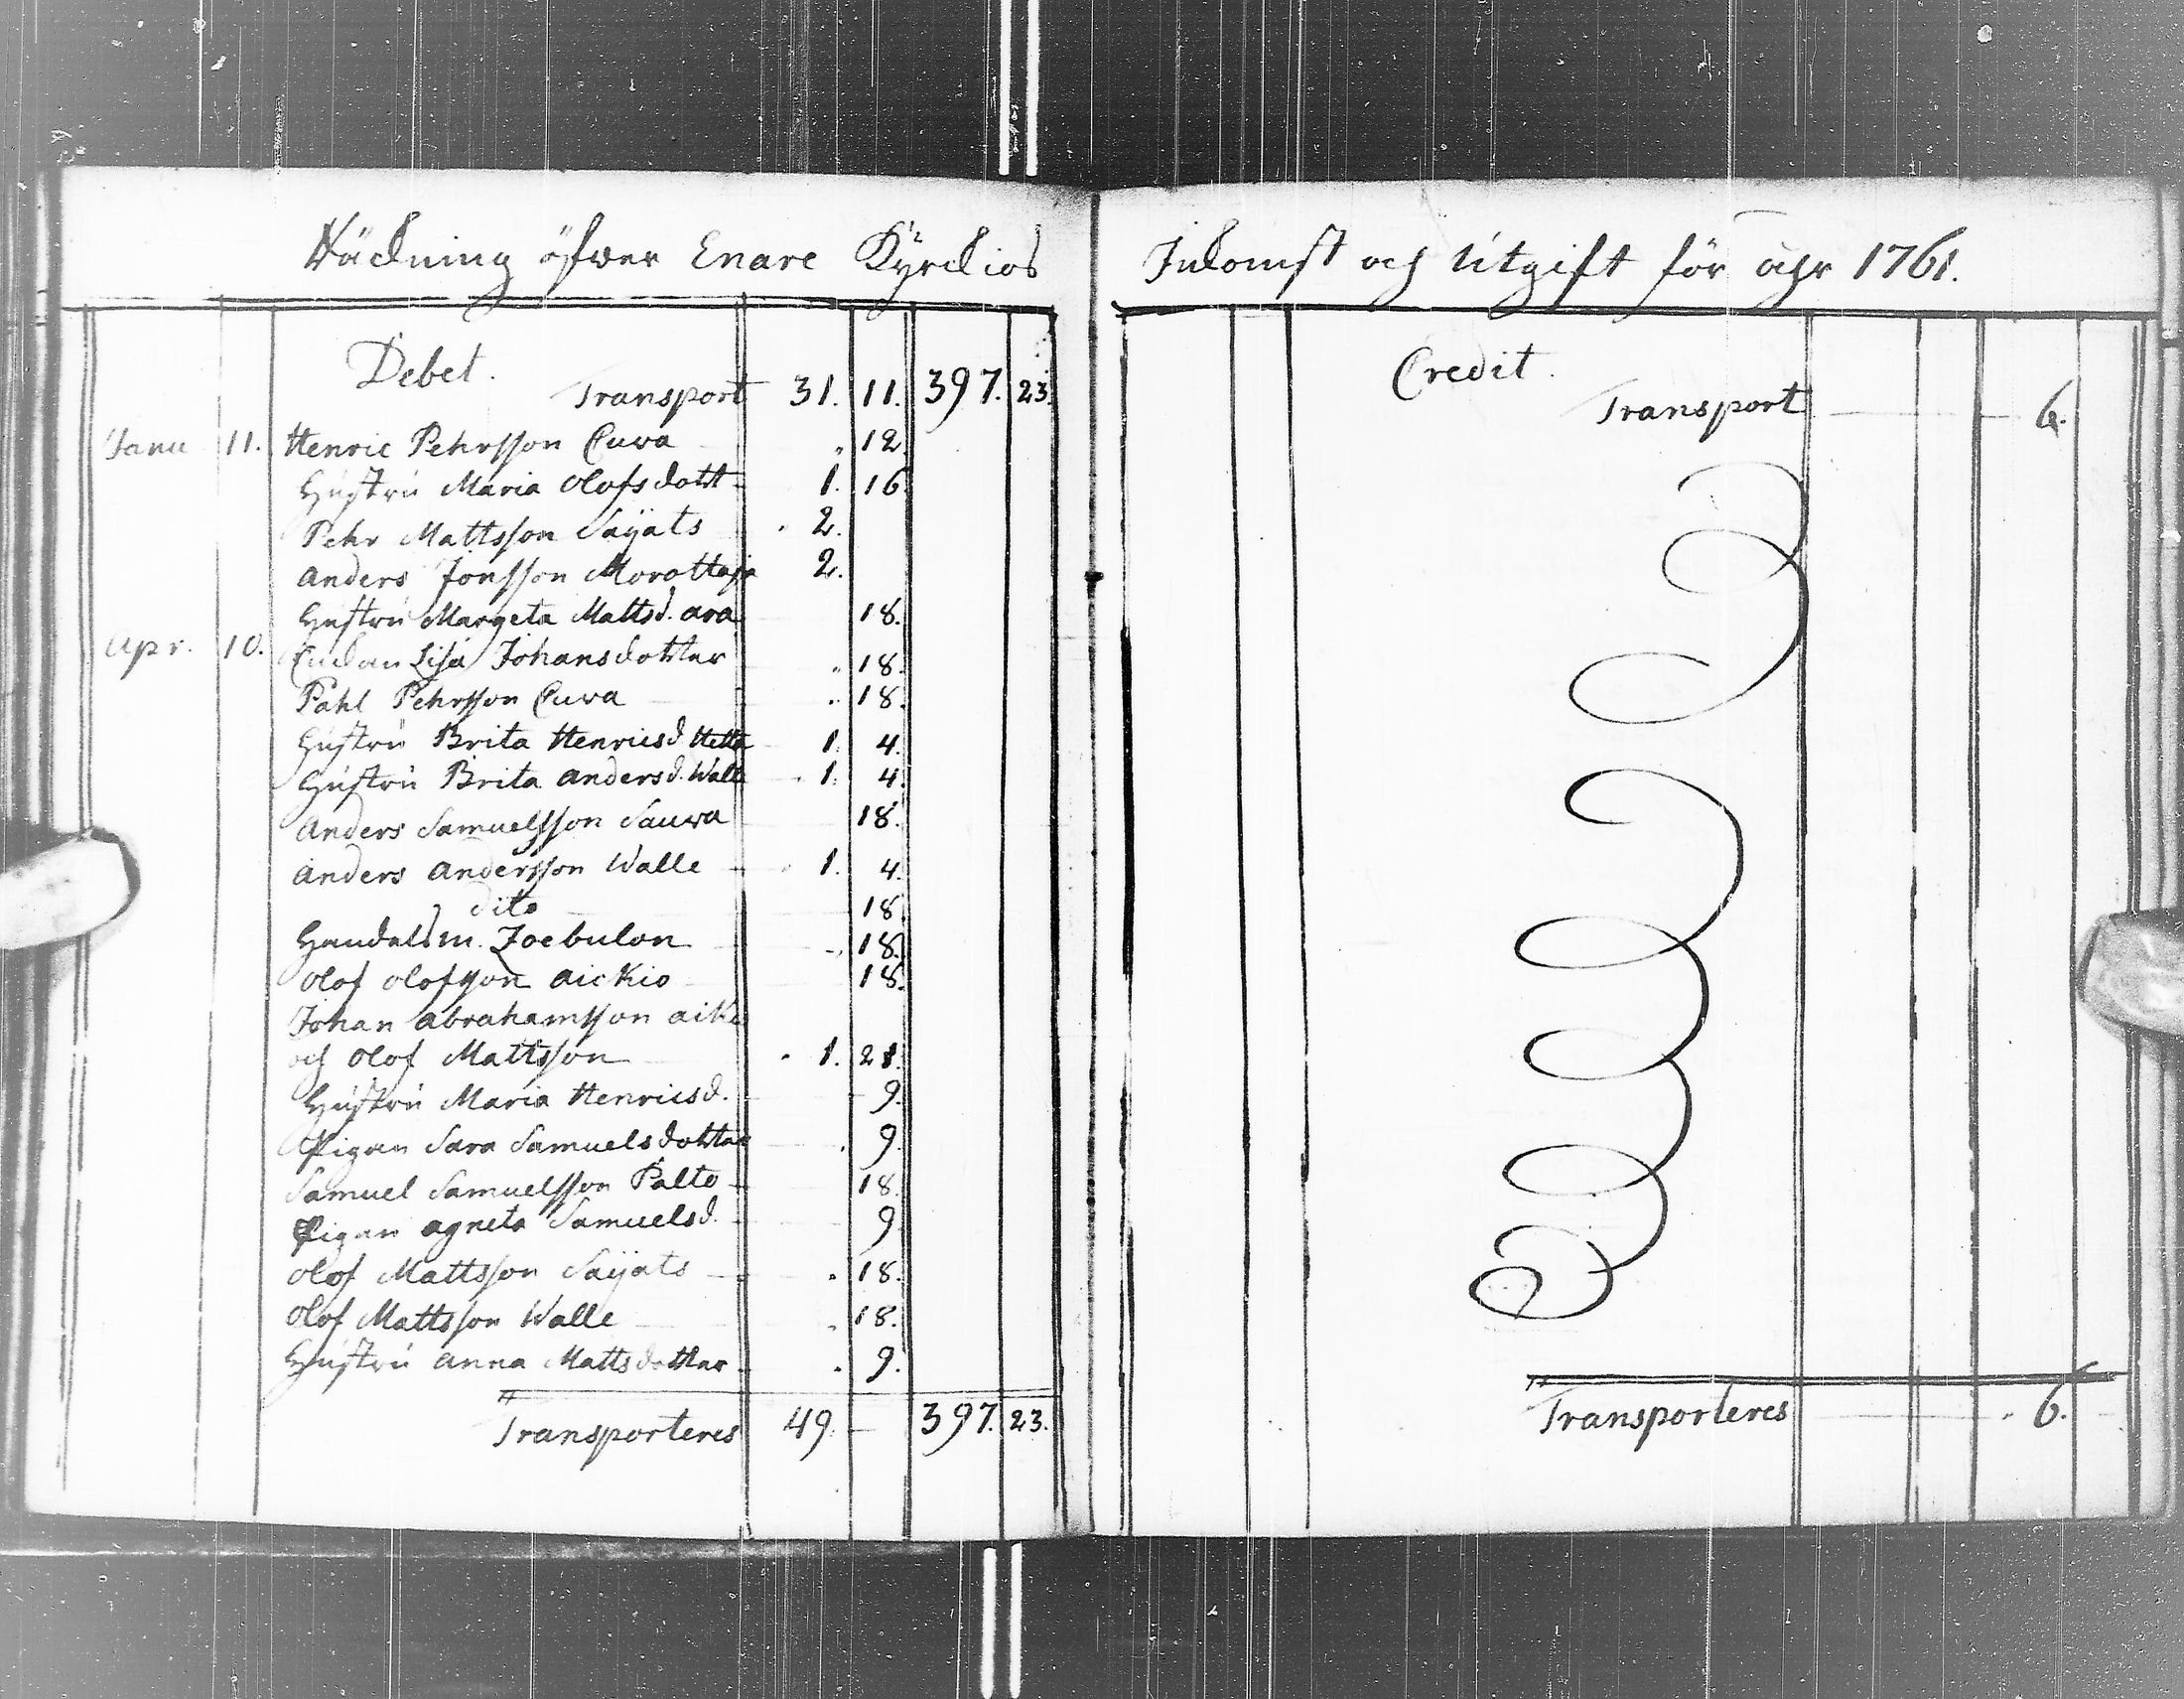 Räckning öfwer Enare Kÿrckios
Debet.
Transport 31. 11. 397. 23.
Janu 11. Henric Pehrsson Cuwa 12
Hustru Maria Olofsdott 1. 16
Pehr Mattsson Saÿats 2.
Anders Jonsson Morottaja 2.
Hustru Margeta Mattsd. ara 18.
Apr. 10. Enckan Lisa Johansdotter 18.
Pahl Pehrsson Cuwa 18.
Hustru Brita Henricsd Hetta 1. 4.
Hustru Brita Andersd. Walle 1. 4.
Anders Samuelsson Sauwa 18.
Anders Andersson Walle 1. 4.
dito 18.
Handelsm. Zoebulon 18.
Olof Olofsson Aickio 18.
Johan Abrahamsson aiki
och Olof Mattsson 1. 21.
Hustru Maria Henricsd. 9.
Pigan Sara Samuelsdotter 9.
Samuel Samuelsson Palto 18.
Pigan Agneta Samuelsd. 9
Olof Mattsson Saÿats 18.
Olof Mattsson Walle 18.
Hustru Anna Mattsdotter 9.
Transporteres 49. — 397. 23.
Inkomst och Utgift för åhr 1761.
Credit.
Transport 6.
Transporteres 6.